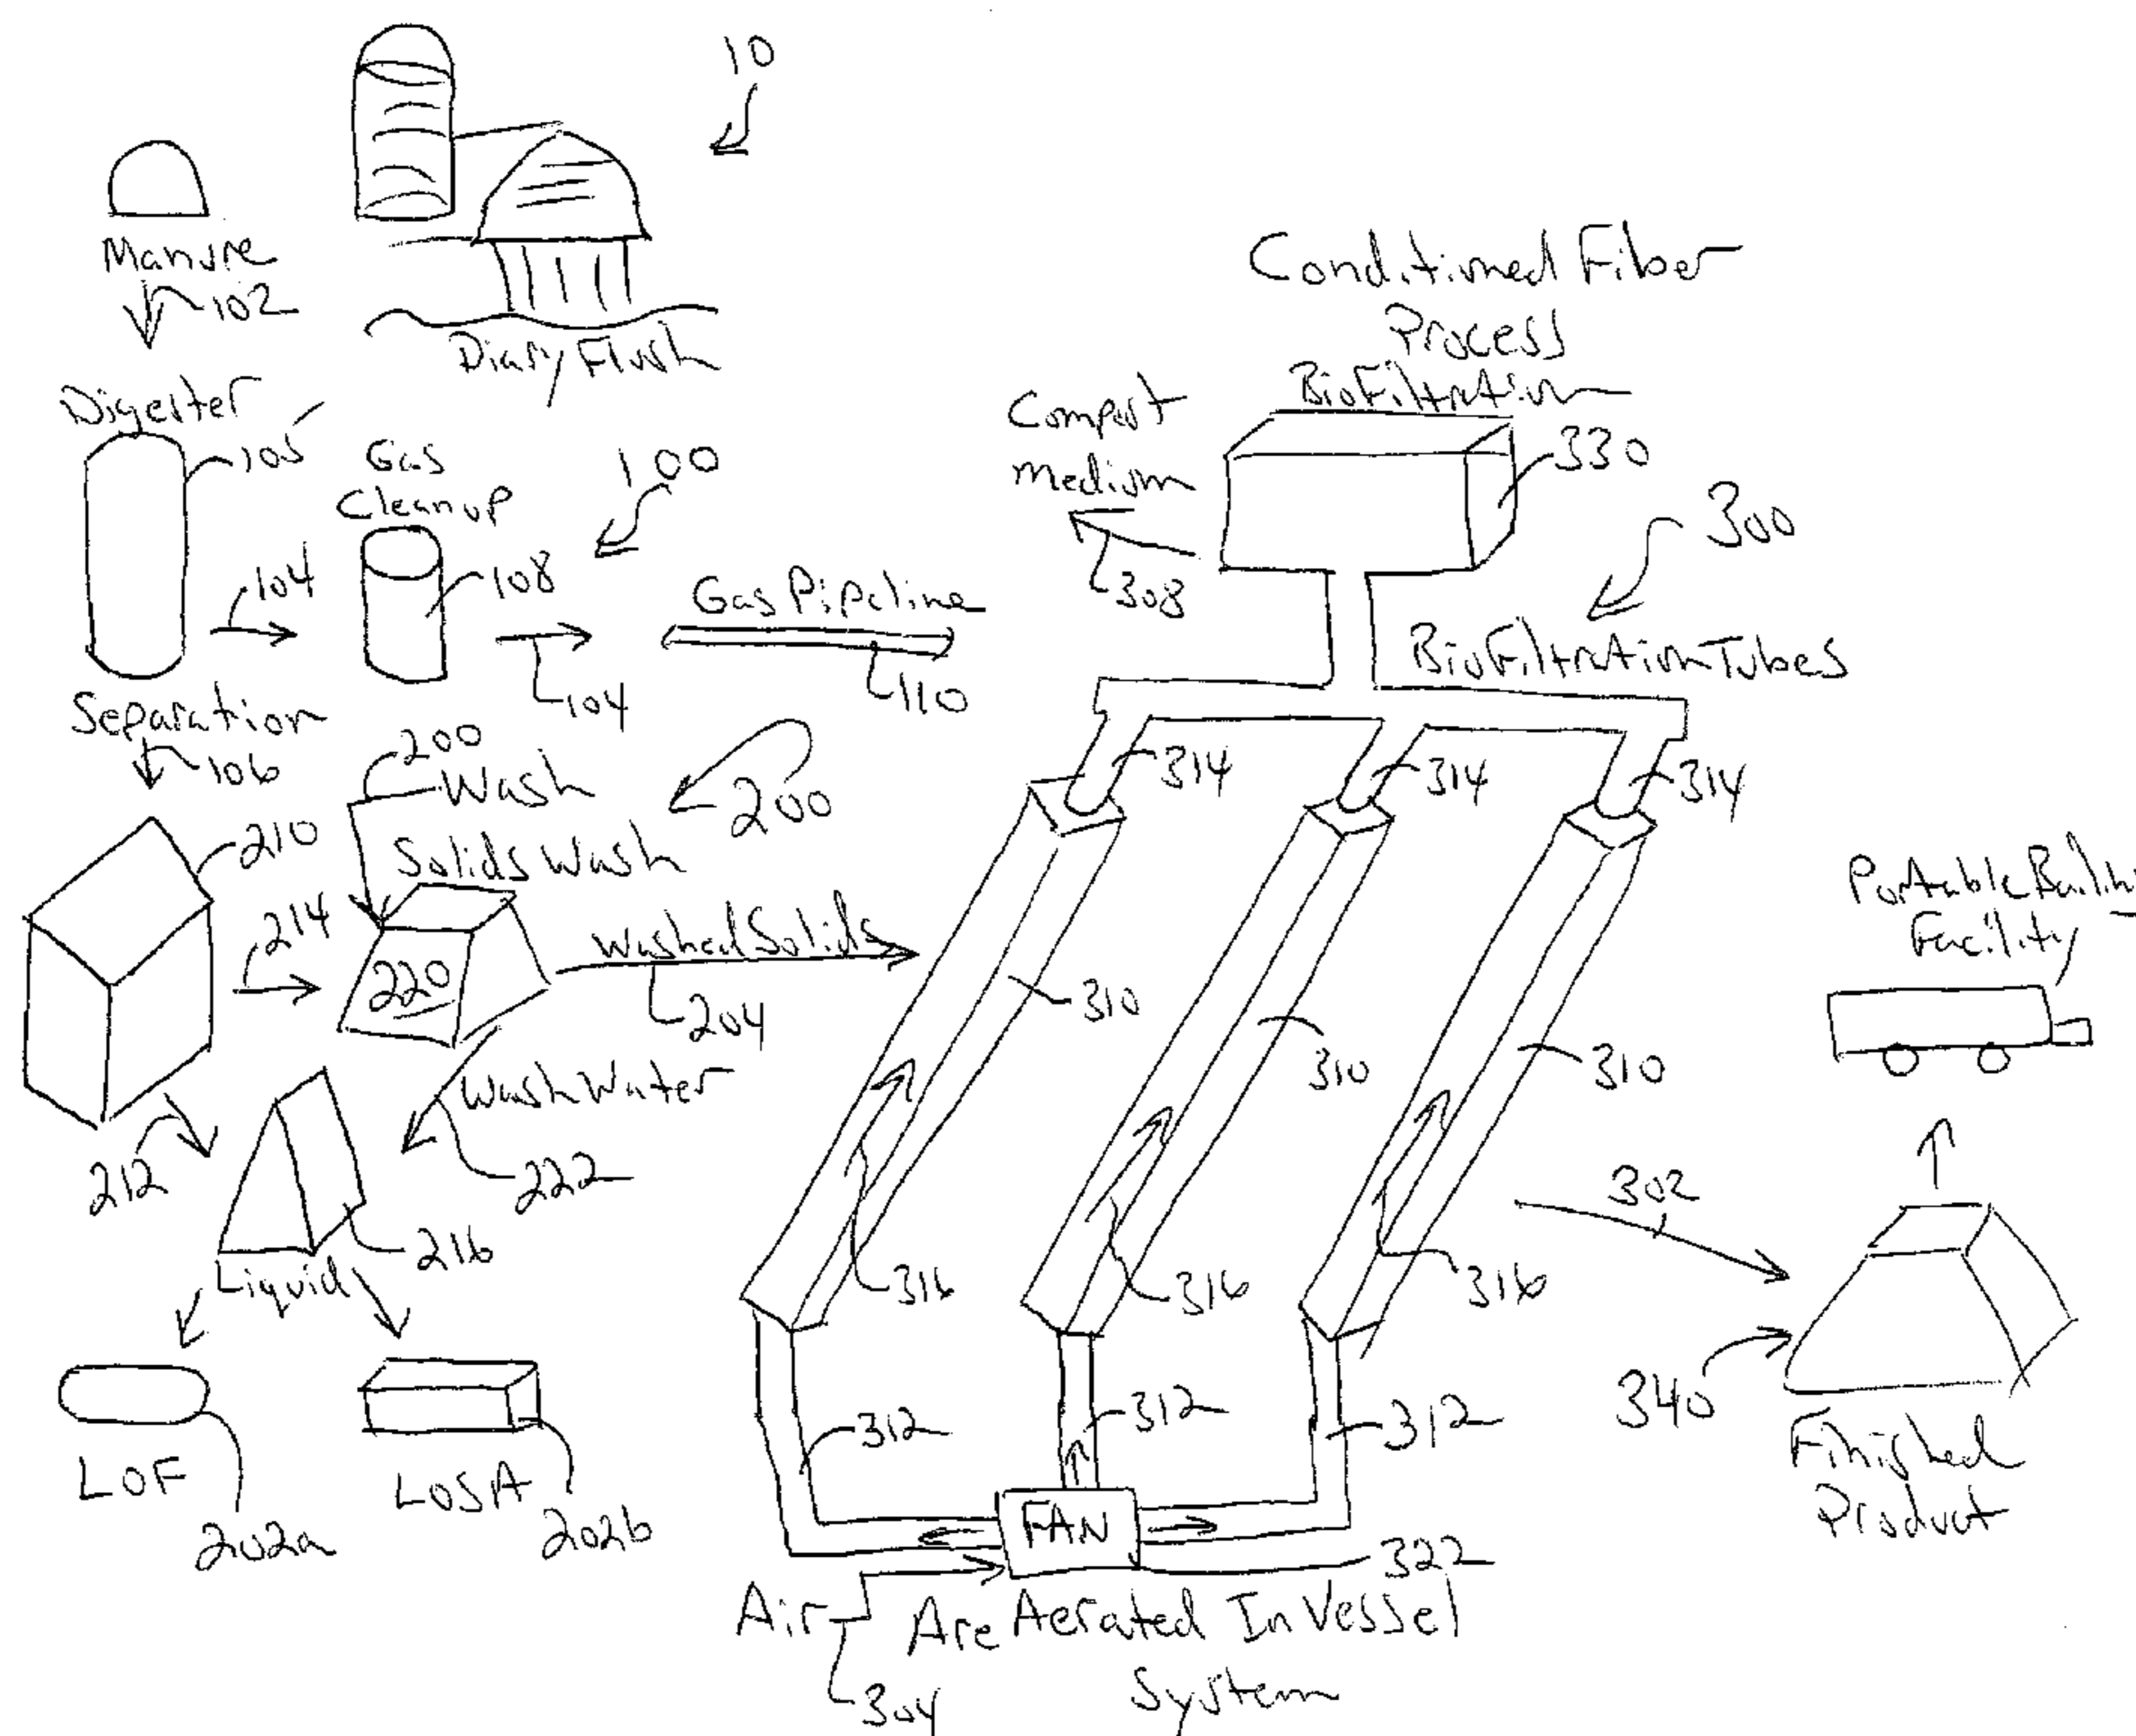 10
Manure
102
Diary Flush
Digester
105
Gas
Cleanup
100
104
108
104
Gas Pipeline
110
Separation
106
200
Wash
200
210
Solids Wash
214
220
Washed Solids
204
Wash Water
212
222
216
Liquid
LOF
202a
LOSA
202b
Conditioned Fiber
Process
BioFiltration
Compost
Medium
330
308
300
BioFiltration Tubes
314
314
314
310
310
310
316
316
316
312
312
312
FAN
322
Air
304
Are Aerated In Vessel
System
302
Portable Bailing
Facility
340
Finished
Product